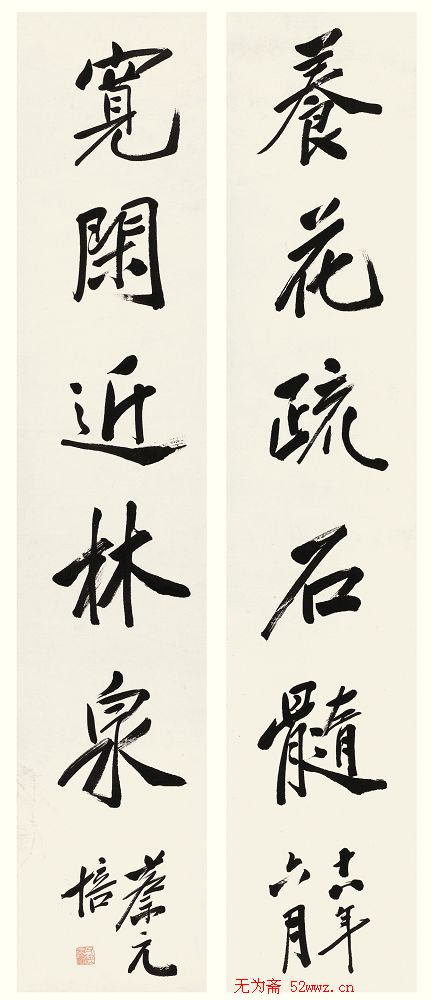 養花疏石髓
十八年
六月
寬閑近林泉
蔡元
培
无为斋 52wwz.cn